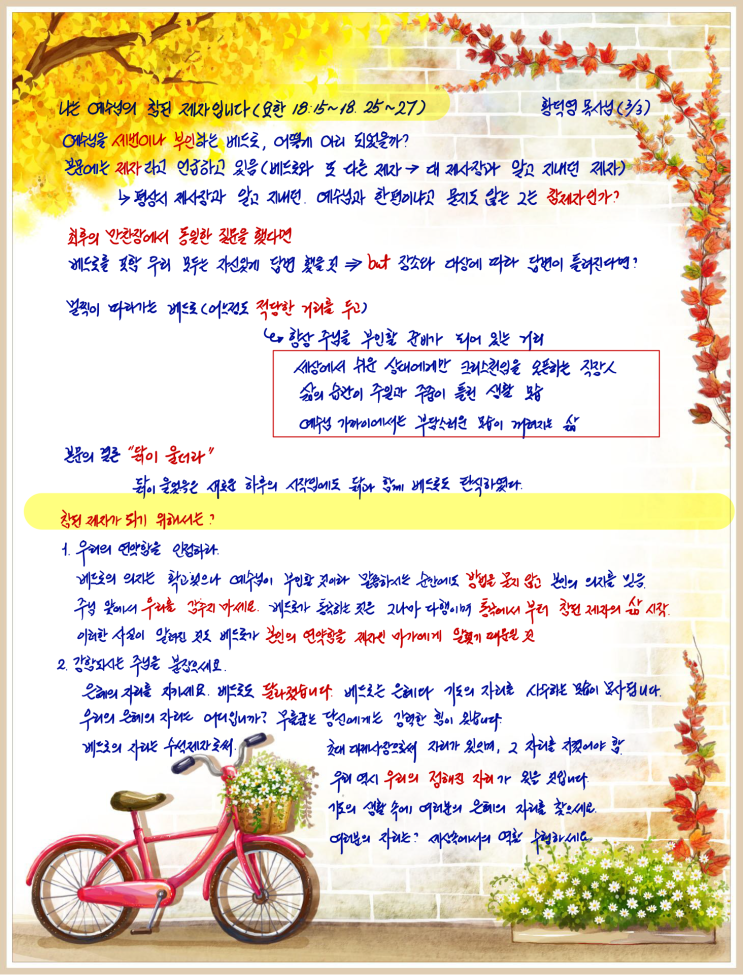 나는 예수님의 참된 제자입니다 (요한 18:15~18. 25~27) 황덕영 목사님 (3/3)
예수님을 세번이나 부인하는 베드로, 어떻게 이리 되었을까?
본문에는 제자라고 언급하고 있음 (베드로와 또 다른 제자 → 대 제사장과 알고 지내던 제자)
↳ 평상시 제사장과 알고 지내던. 예수님과 한편이냐고 묻지도 않는 그는 참제자인가?
최후의 만찬장에서 동일한 질문을 했다면
베드로를 포함 우리 모두는 자신있게 답변 했을것 ⇒ but 장소와 대상에 따라 답변이 틀려진다면?
멀찍이 따라가는 베드로 (어느정도 적당한 거리를 두고)
↳ 항상 주님을 부인할 준비가 되어 있는 거리
세상에서 쉬운 상대에게만 크리스천임을 오픈하는 직장人
삶의 습관이 주일과 주중이 틀린 생활 모습
예수님 가까이에서는 부담스러운 모습이 가려지는 삶
본문의 결론 "닭이 울더라"
닭이 울었음은 새로운 하루의 시작임에도 닭과 함께 베드로도 탄식하였다.
참된 제자가 되기 위해서는?
1. 우리의 연약함을 인정하라.
베드로의 의지는 확고했으나 예수님이 부인할 것이라 말씀하시는 순간에도 방법을 묻지 않고 본인의 의지를 믿음
주님 앞에서 우리를 감추지 마세요. 베드로가 통곡하는 것은 그나마 다행이며 통곡에서 부터 참된 제자의 삶 시작.
이러한 사실이 알려진 것도 베드로가 본인의 연약함을 제자인 마가에게 알렸기 때문일 것
2. 강함되시는 주님을 붙잡으세요.
은혜의 자리를 지키세요. 베드로도 달라졌습니다. 베드로는 은혜와 기도의 자리를 사수하는 모습이 묘사됩니다.
우리의 은혜의 자리는 어디입니까? 무릎꿇는 당신에게는 강력한 힘이 있습니다.
베드로의 자리는 수석제자로써. 초대 대제사장으로써 자리가 있으며, 그 자리를 지켰어야 함.
우리 역시 우리의 정해진 자리가 있을 것입니다
기도의 생활 속에 여러분의 은혜의 자리를 찾으세요
여러분의 자리는? 세상속에서의 역할 수행하세요